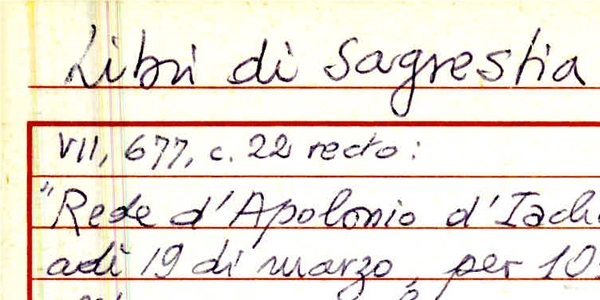 Libri di Sagrestia
VII, 677, c. 22 recto:
"Rede d'Apolonio
adì 19 di marzo, per